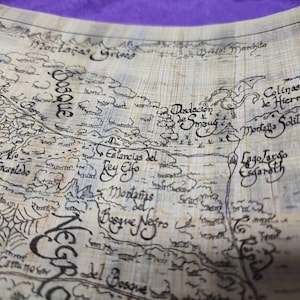 Montañas Grises
Brezal Marchito
Bosque
Colinas
de Hierro
Desolación
de Smaug
Montaña Solit
Estancias del
Rey Elfo
Lago Largo
Esgaroth
Montañas
del
Bosque Negro
NEGRO
del Bosque